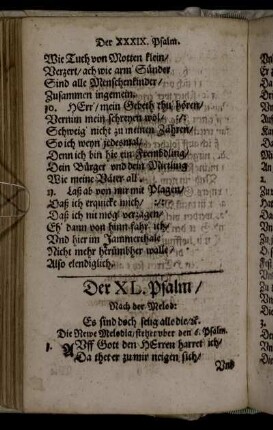 Der XXXIX. Psalm.
Wie Tuch von Motten klein/
Verzert/ ach wie arm Sünder
Sind alle Menschenkinder/
Zusammen ingemein.
10. HErr/ mein Gebeth thu hören/
Vernim mein schreyen wol/
Schweig nicht zu meinen Zähren/
So ich weyn jedesmal/
Denn ich bin hie ein Frembdling/
Dein Bürger und dein
Wie meine Väter all.
11. Laß ab von mir mit Plagen/
Daß ich erquicke mich/
Daß ich nit mög verzagen/
Eh dann von hinn fahr ich/
Vnd hier im Jammerthale
Nicht mehr herümbher walle/
Also elendiglich.
Der XL. Psalm/
Nach der Melod:
Es sind doch selig alle die/ &.
Die Newe Melodia/ stehet vber den 6. Psalm.
1. AUff Gott den HErren harret ich/
Da thet er zu mir neigen sich/
Vnd